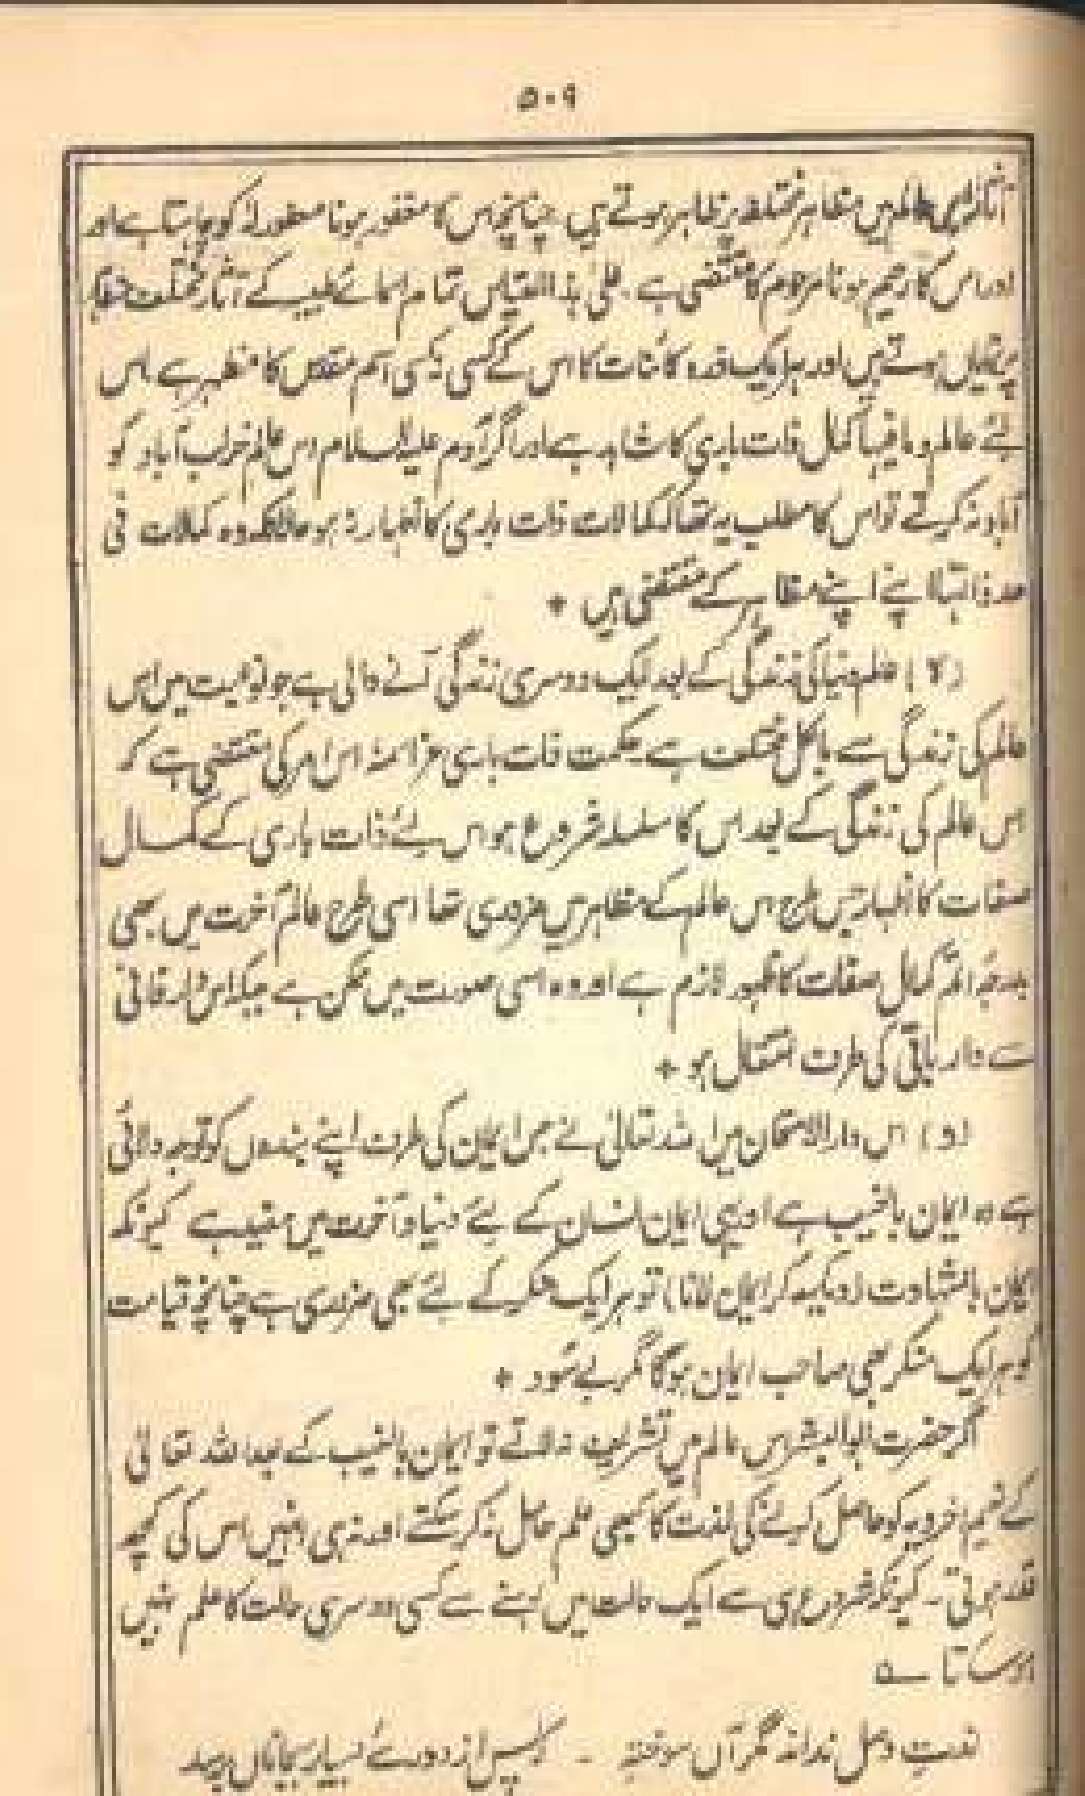 ۵۰۹
عالم میں مظاہر مختلفہ پر ظاہر ہوتے ہیں۔ چنانچہ اس کا غفور ہونا مغفور لہ کو چاہتا ہے اور
اور اس کا رحیم ہونا مرحوم کا مقتضی ہے۔ علیٰ ہذا القیاس تمام اسمائے طیبہ کے آثار مختلف
پر نمایاں ہوتے ہیں اور ہر ایک ذرہ کائنات کا اس کے کسی نہ کسی اسم مقدس کا مظہر ہے اس
لئے عالم و ما فیہا کمال ذات باری کا شاہد ہے اور اگر آدم علیہ السلام اس عالم خراب آباد کو
آباد نہ کرتے تو اس کا مطلب یہ تھا کہ کمالات ذات باری کا اظہار نہ ہو حالانکہ وہ کمالات فی
حد ذاتہا اپنے اپنے مظاہر کے مقتضی ہیں +
عالم دنیا کی زندگی کے بعد ایک دوسری زندگی آنے والی ہے جو نوعیت میں اس
عالم کی زندگی سے بالکل مختلف ہے۔ حکمت ذات باری عز اسمہٗ اس امر کی مقتضی ہے کہ
اس عالم کی زندگی کے بعد اس کا سلسلہ شروع ہو اس لئے ذات باری کے کمال
صفات کا اظہار جس طرح اس عالم کے مظاہر میں ضروری تھا اسی طرح عالم آخرت میں بھی
بدرجہ اتم کمال صفات کا ظہور لازم ہے اور وہ اسی صورت میں ممکن ہے جبکہ اس دار فانی
سے دار باقی کی طرف انتقال ہو +
(و) اس دار الامتحان میں اللہ تعالیٰ نے جس ایمان کی طرف اپنے بندوں کو توجہ دلائی
ہے وہ ایمان بالغیب ہے اور یہی ایمان انسان کے لئے دنیا و آخرت میں مفید ہے کیونکہ
ایمان بالشہادت (دیکھ کر ایمان لانا) تو ہر ایک منکر کے لئے بھی ضروری ہے چنانچہ قیامت
کو ہر ایک منکر بھی صاحب ایمان ہوگا مگر بے سود +
اگر حضرت ابوالبشر اس عالم میں تشریف نہ لاتے تو ایمان بالغیب کے بعد اللہ تعالیٰ
کے نعیم اخرویہ کو حاصل کرنے کی لذت کا کبھی علم حاصل نہ کر سکتے اور نہ ہی انہیں اس کی کچھ
قدر ہوتی۔ کیونکہ شروع ہی سے ایک حالت میں رہنے سے کسی دوسری حالت کا علم نہیں
ہو سکتا ے
وصل نداند مگر آں سوختہ - کہ پس از دورئے بسیار بجاناں برسد